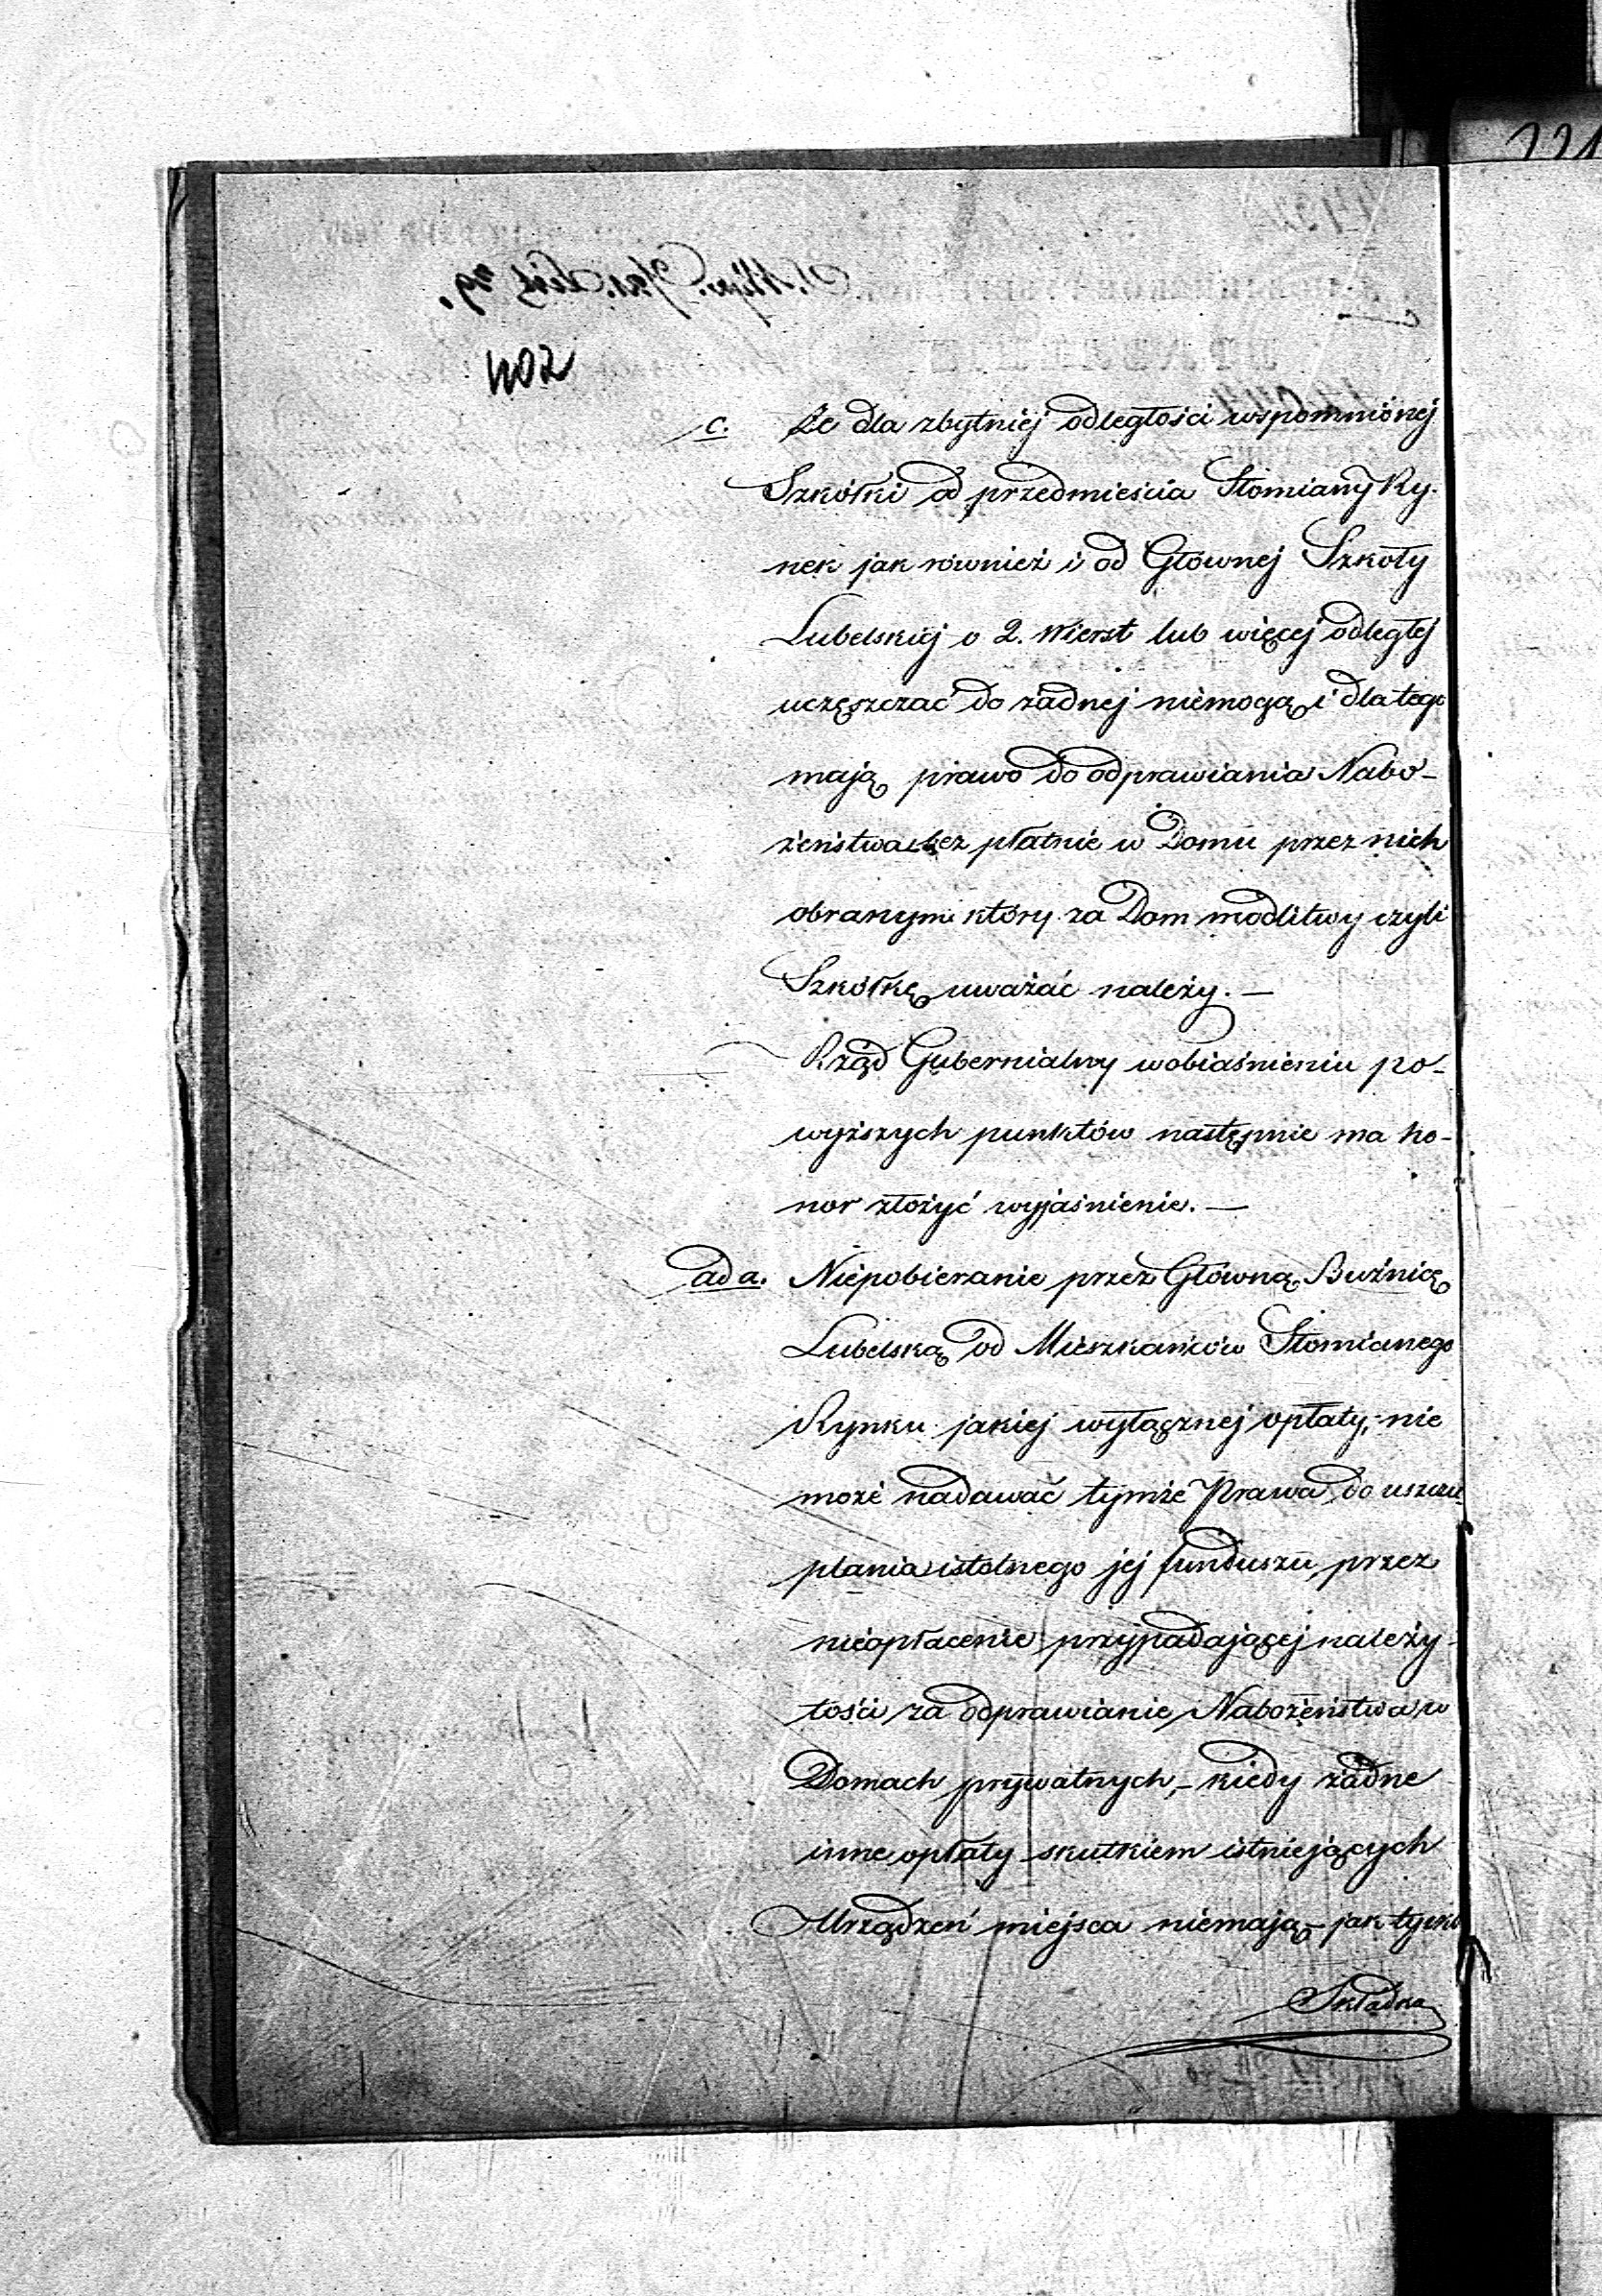 402
c. Że dla zbytniéj odległości wspomnionéj
Szkółki od przedmieścia Słomiany Ry-
nek jak również i od Głównej Szkoły
Lubelskiéj o 2. Wierst lub więcej odległéj
uczęszczać do żadnej niemogą i dla tego
mają prawo do odprawiania Nabo-
żeństwa bez płatnie w Domu przez nich
obranym który za Dom modlitwy czyli
Szkółkę uważać należy. —
Rząd Gubernialny w obiaśnieniu po-
wyższych punktów następnie ma ho-
nor złożyć wyjaśnienie. —
ad a. Niepobieranie przez Główną Bużnicę
Lubelską od Mieszkańców Słomianego
Rynku jakiej wyłącznej opłaty, nie
może nadawać tymże Prawa do uszczu-
plania istotnego jej funduszu, przez
nieopłacenie przypadającej należy-
tości za odprawianie Nabożeństwa w
Domach prywatnych, – kiedy żadne
inne opłaty skutkiem istniejących
Urządzeń miejsca niemają – jak tylko
Składka